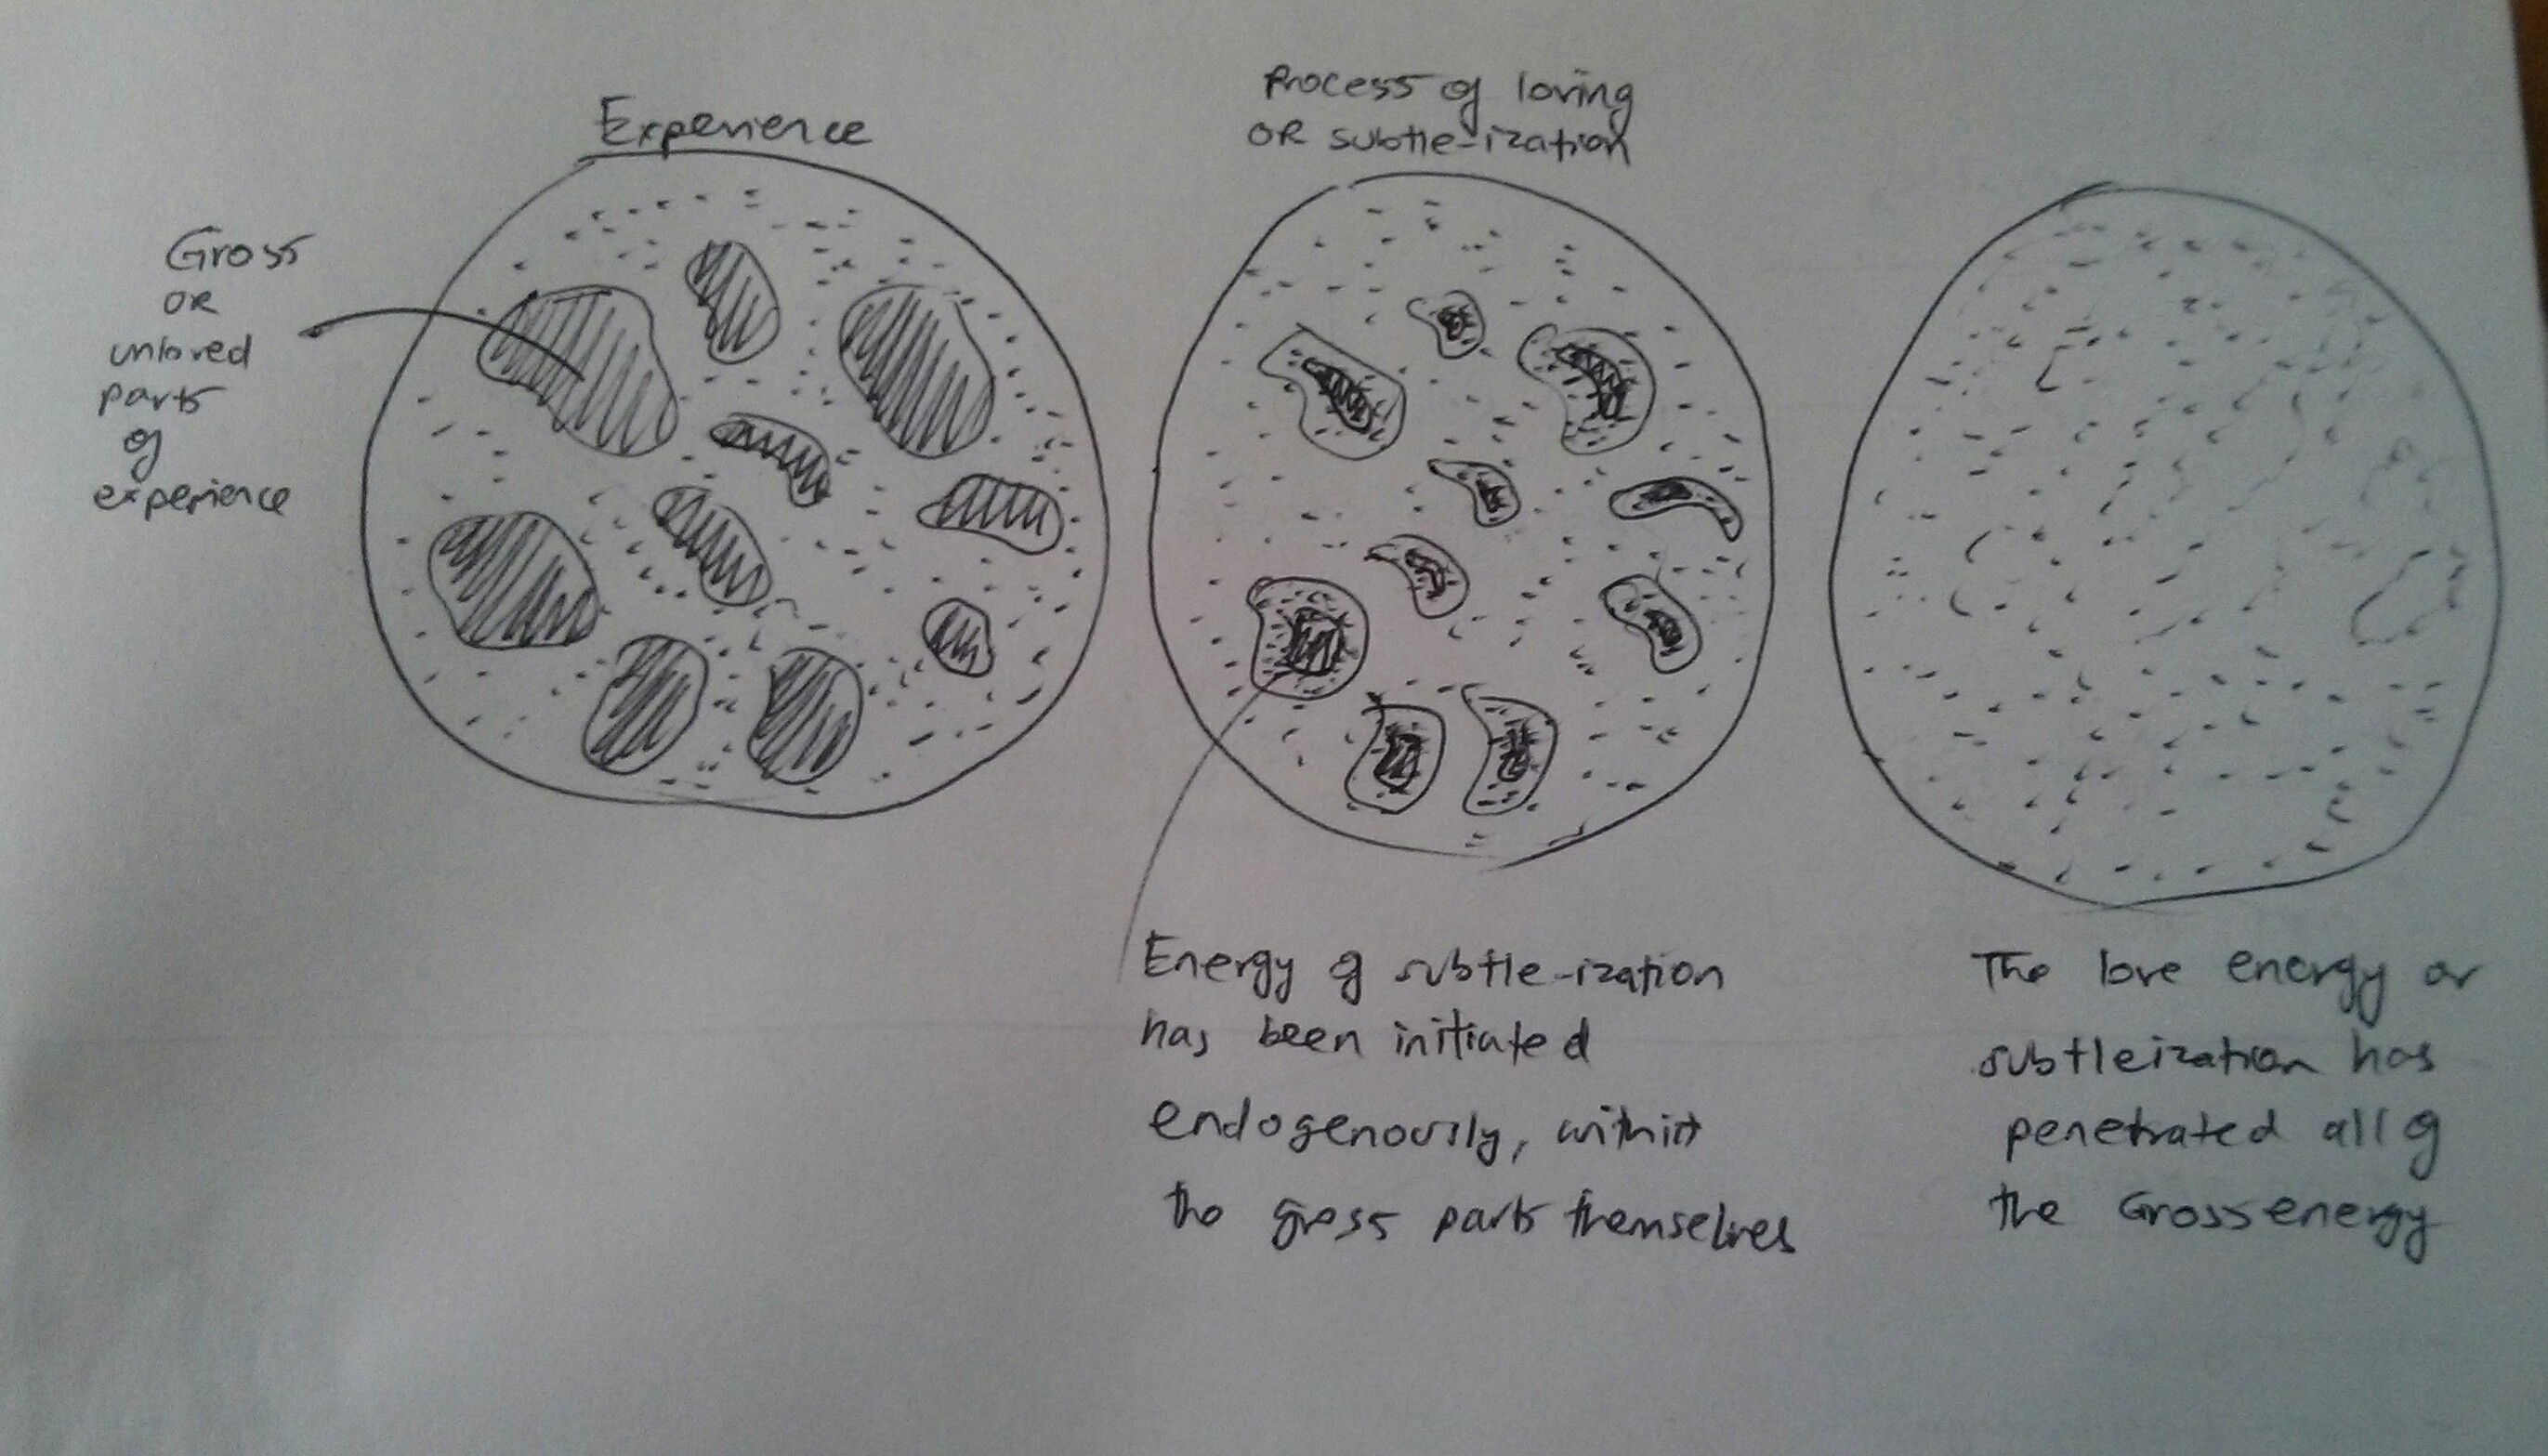 Experience
Process of loving
OR subtle-ization
Gross
OR
unloved
parts
of
experience
Energy of subtle-ization
has been initiated
endogenously, within
the gross parts themselves
The love energy or
subtleization has
penetrated all of
the Gross energy